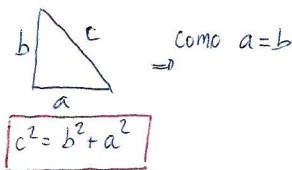 b c ⇒ como a = b
a
c² = b² + a²